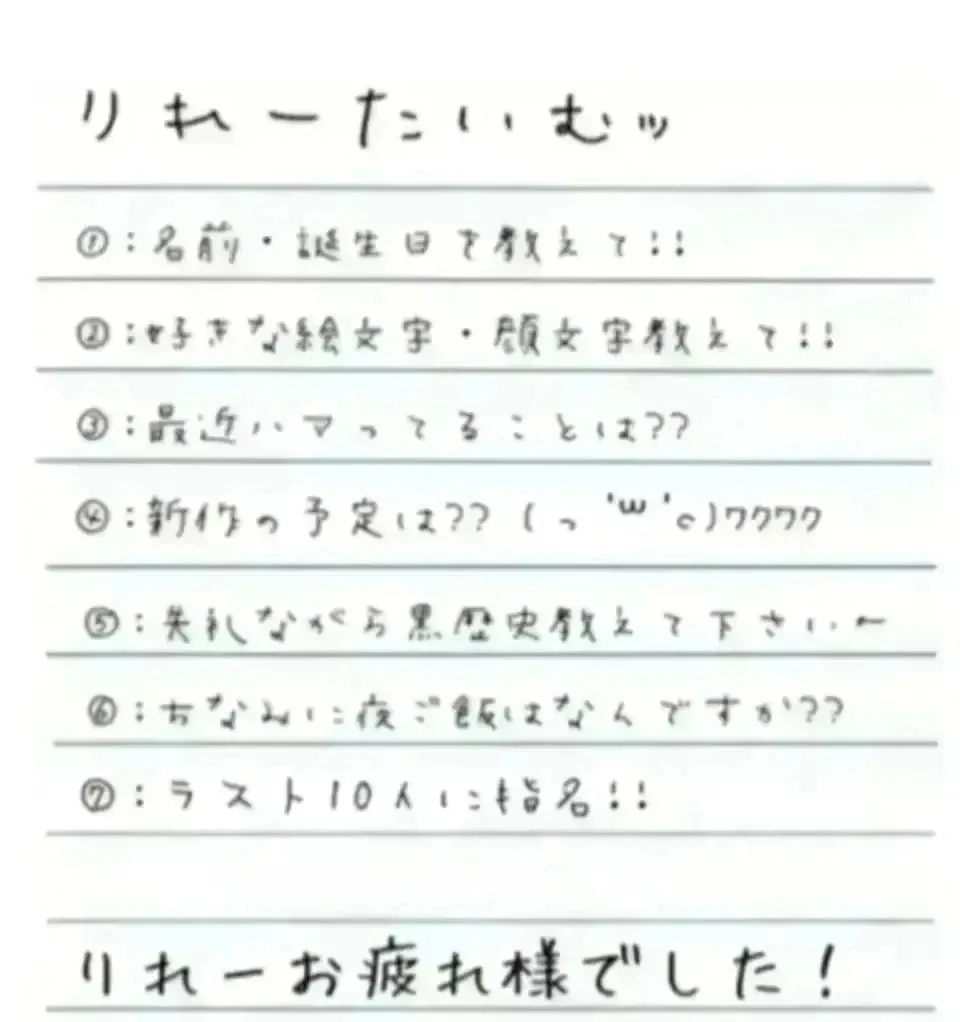 りれーたいむッ
①:名前・誕生日を教えて!!
②:好きな絵文字・顔文字教えて!!
③:最近ハマってることは??
④:新作の予定は??(っ'ω'c)ワクワク
⑤:失礼ながら黒歴史教えて下さい~
⑥:ちなみに夜ご飯はなんですか??
⑦:ラスト10人に指名!!
りれーお疲れ様でした!